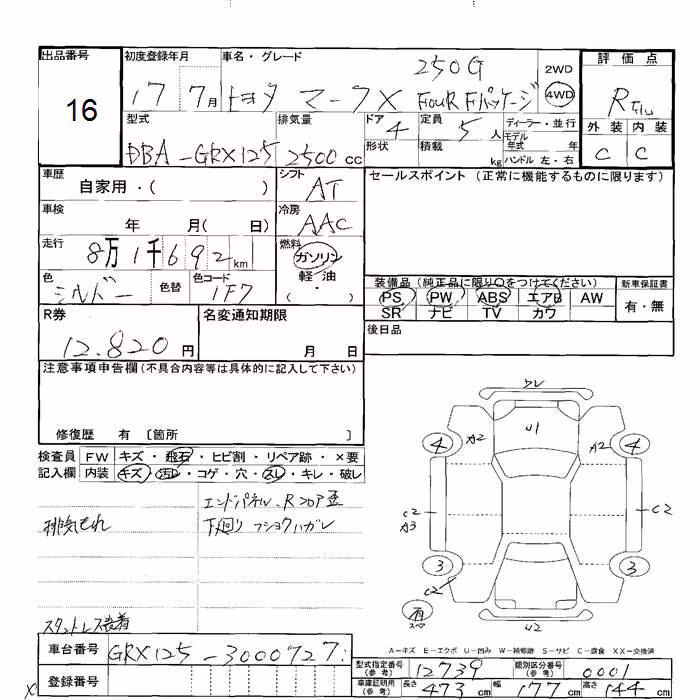 出品番号
16
初度登録年月
17 7月
車名・グレード
250G
トヨタ マークX FouR Fパッケージ
2WD
4WD
評価点
R
外装 内装
C C
型式
DBA-GRX125
排気量
2500cc
ドア
4
形状
定員
5人
積載
kg
ディーラー・並行
モデル年式 年
ハンドル 左・右
車歴
自家用・( )
シフト
AT
車検
年 月( 日)
冷房
AAC
走行
8万1千692km
燃料
ガソリン
軽・油
( ・ )
色
シルバー
色替
色コード
1F7
セールスポイント (正常に機能するものに限ります)
装備品 (純正品に限り○をつけてください)
PS PW ABS エアB AW
SR ナビ TV カワ
新車保証書
有・無
後日品
R券
12.820円
名変通知期限
月 日
注意事項申告欄(不具合内容等は具体的に記入して下さい)
修復歴 有 〔箇所 〕
検査員記入欄
FW キズ・飛石・ヒビ割・リペア跡・×要
内装 キズ・汚レ・コゲ・穴・スレ・キレ・破レ
エンドパネル、Rフロア歪
排気もれ
下廻り フショクハガレ
スタットレス装着
U1
4 A2
A2 4
C2
A3
C2
3
3
C2
有
スペア
U2
A-キズ E-エクボ U-凹み W-補修跡 S-サビ C-腐食 XX-交換済
車台番号
GRX125-3000727
登録番号
型式指定番号(参考)
12739
類別区分番号(参考)
0001
車庫証明用(参考)
長さ 473cm 幅 177cm 高さ 144cm
X